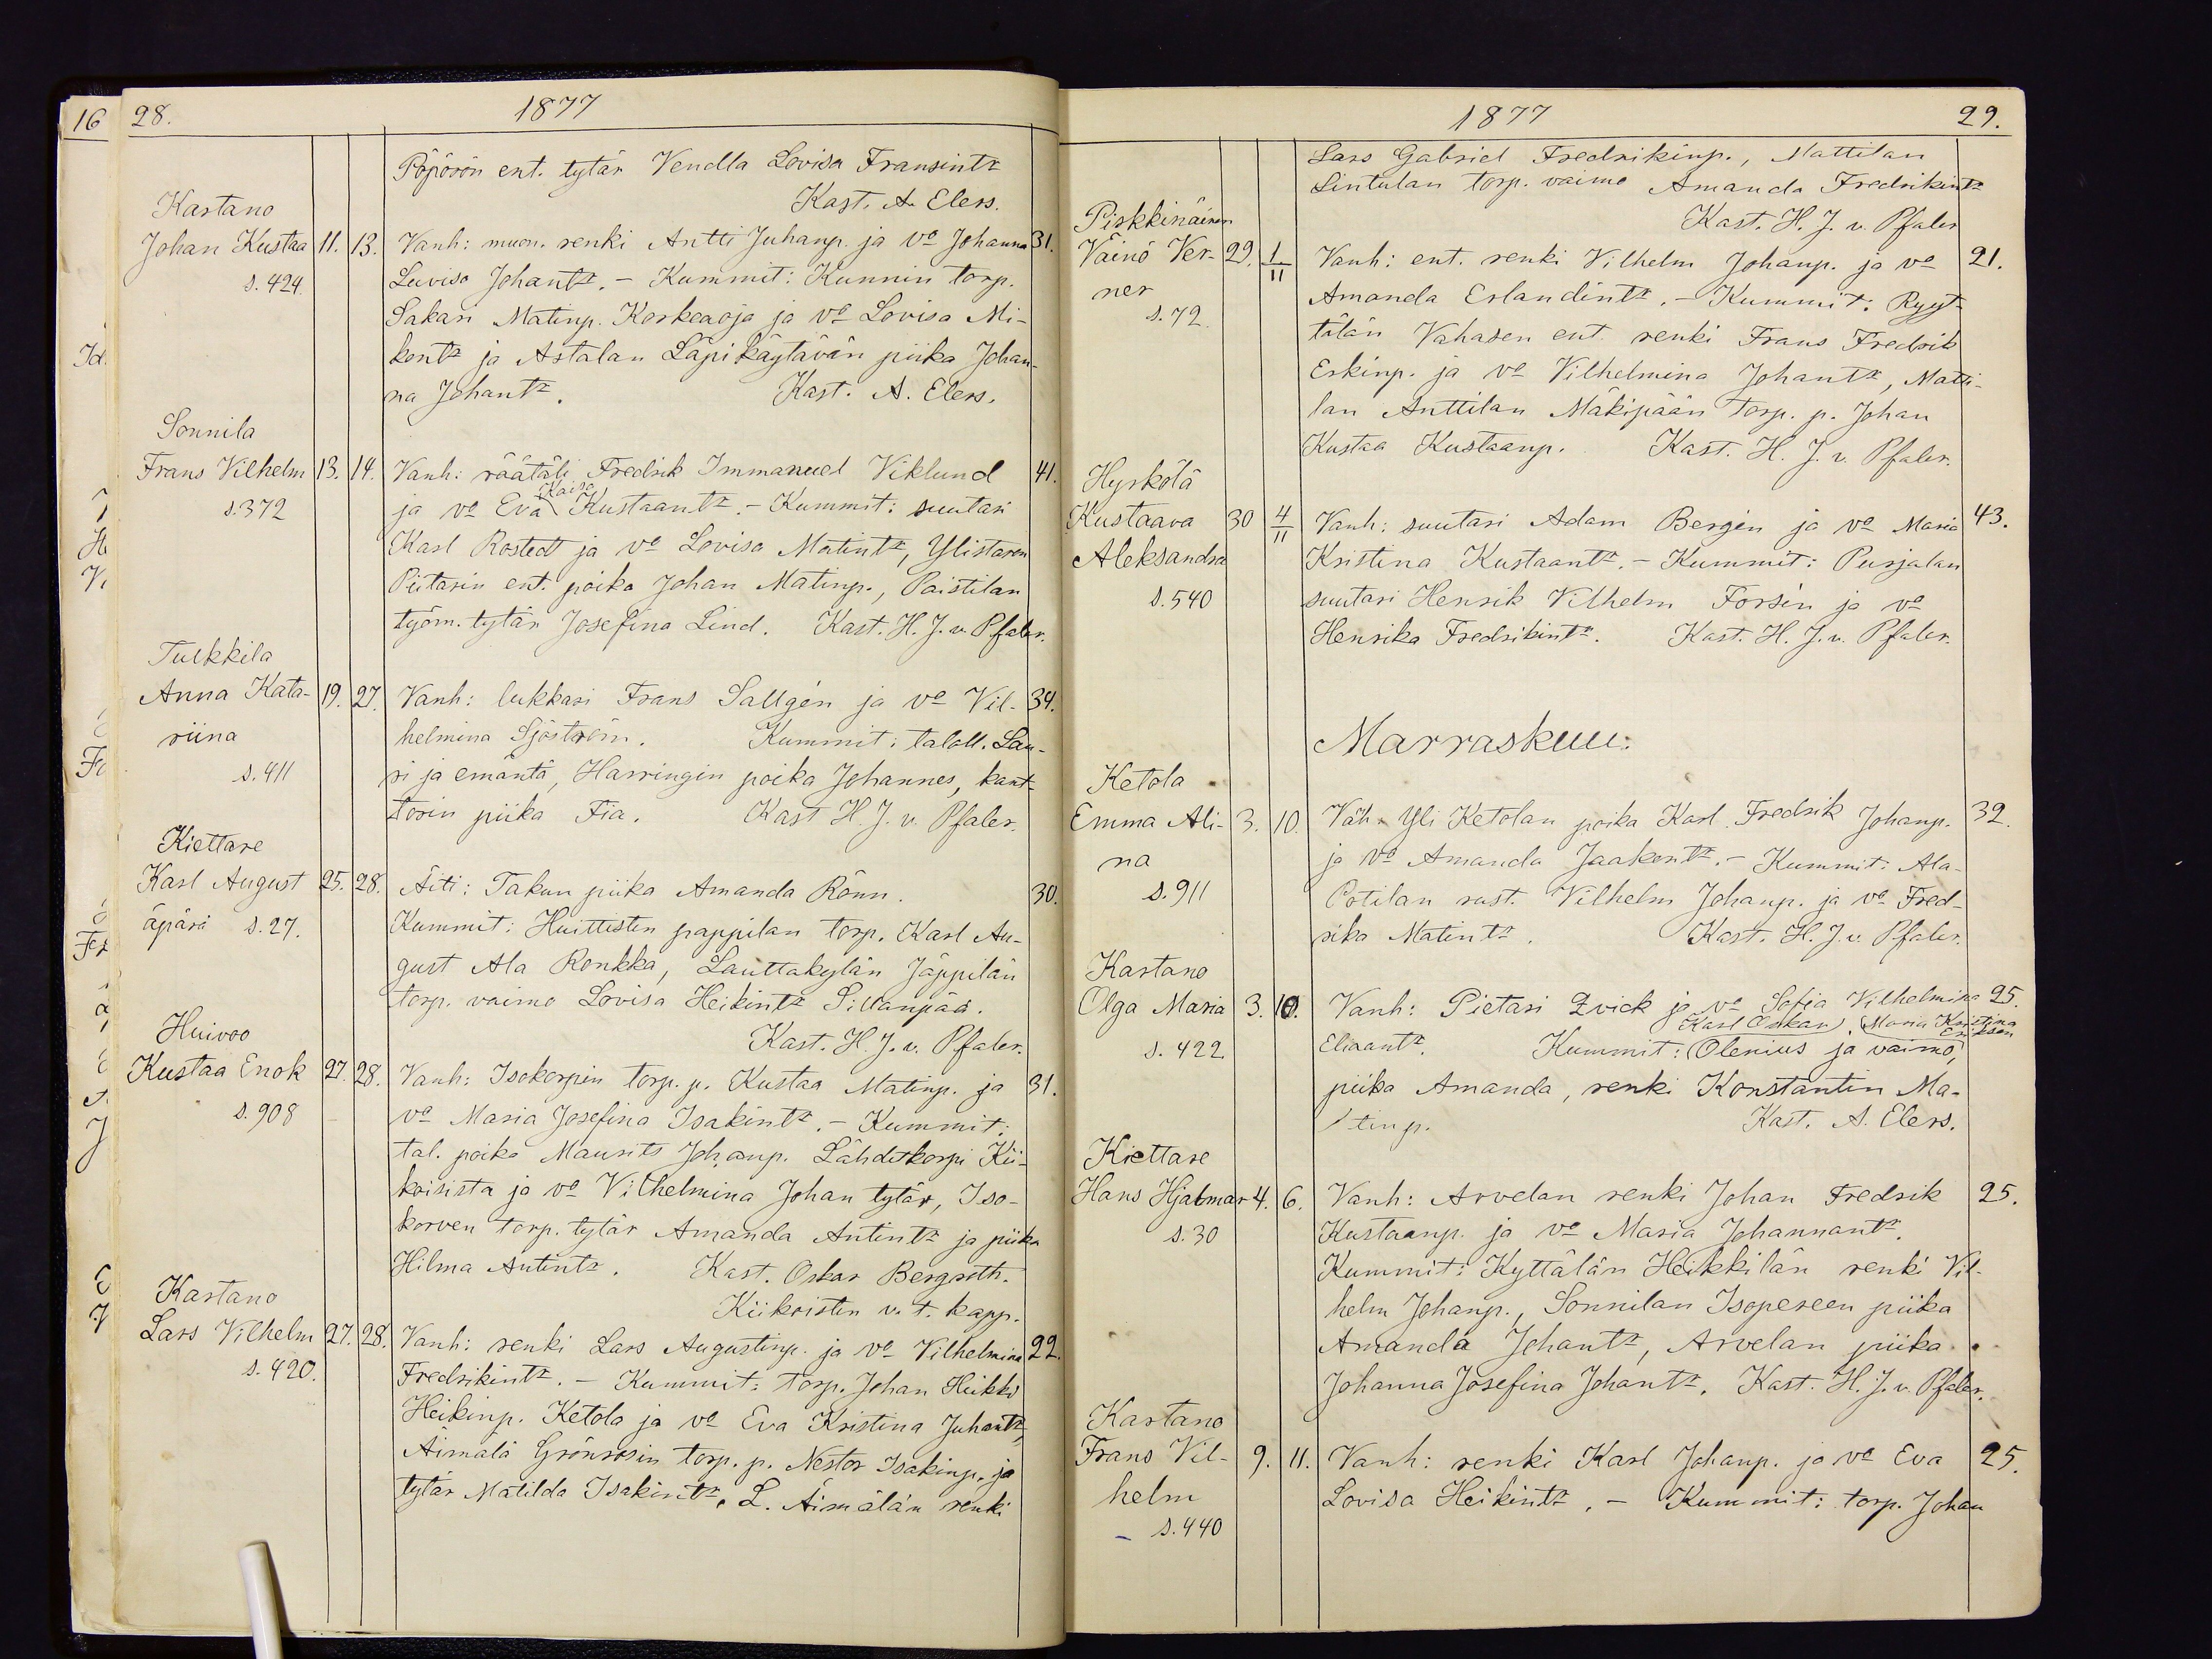 16
28.
1877
Pöpösön ent. tytär Vendla Lovisa Fransintr
Kast. A. Elers.
Kartano
Johan Kustaa 11. 13. Vanh: muon. renki Antti Juhanp. ja vo Johanna 31.
s. 424 Lovisa Johantr. - Kummit: Kunnin torp.
Sakari Matinp. Korkeaoja ja vo Lovisa Mi-
kontr ja Astalan Läpikäytävän piika Johan-
na Johantr. Kast. A. Elers.
Sonnila
Frans Vilhelm 13. 14. Vanh: räätäli Fredrik Immanuel Viklund 41.
s. 372 ja vo Eva Kaisa Kustaantr. - Kummit: suutari
Karl Rostedt ja vo Lovisa Matintr, Ylistaren
Piitarin ent. poika Johan Matinp., Paistilan
työm. tytär Josefina Lind. Kast. H. J. v. Pfaler.
Tulkkila
Anna Kata- 19. 27. Vanh: lukkari Frans Sallgén ja vo Vil- 34.
riina helmina Sjöström. Kummit: taloll. Lau-
s. 411 ri ja emäntä, Harringin poika Johannes, kant-
torin piika Fia. Kast H. J. v. Pfaler.
Kiettare
Karl August 25. 28. Äiti: Takun piika Amanda Rönn. 30.
äpärä s. 27. Kummit: Huittisten pappilan torp. Karl Au-
gust Ala Ronkka, Lauttakylän Jäppilän
torp. vaimo Lovisa Heikintr Sillanpää.
Kast. H. J. v. Pfaler.
Huivoo
Kustaa Enok 27. 28. Vanh: Isokorpin torp. p. Kustaa Matinp. ja 31.
s. 908 vo Maria Josefina Isakintr. - Kummit:
tal. poika Maurits Johanp. Lähdekorpi Kii-
koisista ja vo Vilhelmina Johan tytär, Iso-
korven torp. tytär Amanda Antintr ja piika
Hilma Antintr. Kast. Oskar Bergroth.
Kiikoisten v. t. kapp.
Kartano
Lars Vilhelm 27. 28. Vanh: renki Lars Augustinp. ja vo Vilhelmina 22.
s. 420. Fredrikintr. - Kummit: torp. Johan Heikki
Heikinp. Ketola ja vo Eva Kristina Juhantr,
Äimälä Grönroosin torp. p. Nestor Isakinp. ja
tytär Matilda Isakintr. L. Äimälän renki
1877
29.
Lars Gabriel Fredrikinp., Mattilan
Lintulan torp. vaimo Amanda Fredrikintr
Kast. H. J. v. Pfaler
Piskkinäinen
Väinö Ver- 29. 1/11 Vanh: ent. renki Vilhelm Johanp. ja vo 21.
ner Amanda Erlandintr. - Kummit: Ryyt-
s. 72. tälän Vahasen ent. renki Frans Fredrik
Erkinp. ja vo Vilhelmina Johantr, Matti-
lan Anttilan Mäkipään torp. p. Johan
Kustaa Kustaanp. Kast. H. J. v. Pfaler.
Hyrkölä
Kustaava 30 4/11 Vanh: suutari Adam Bergén ja vo Maria 43.
Aleksandra Kristina Kustaantr. - Kummit: Purjalan
s. 540 suutari Henrik Vilhelm Forsén ja vo
Henrika Fredrikintr. Kast. H. J. v. Pfaler.
Marraskuu.
Ketola
Emma Ali- 3. 10. Väh. Yli Ketolan poika Karl Fredrik Johanp. 32.
na ja vo Amanda Jaakontr. - Kummit: Ala-
s. 911 Potilan rust. Vilhelm Johanp. ja vo Fred-
rika Matintr. Kast. H. J. v. Pfaler.
Kartano
Olga Maria 3. 10. Vanh: Pietari Qvick ja vo Sofia Vilhelmina 25.
Karl Oskar Maria Kristina Erikson
s. 422 Eliaantr. Kummit: Olenius ja vaimo,
piika Amanda, renki Konstantin Ma-
tinp. Kast. A. Elers.
Kiettare
Hans Hjalmar 4. 6. Vanh: Arvelan renki Johan Fredrik 25.
s. 30 Kustaanp. ja vo Maria Johannantr.
Kummit: Kyttälän Heikkilän renki Vil-
helm Johanp., Sonnilan Isopereen piika
Amanda Johantr, Arvelan piika
Johanna Josefina Johantr. Kast. H. J. v. Pfaler.
Kartano
Frans Vil- 9. 11. Vanh: renki Karl Johanp. ja vo Eva 25.
helm Lovisa Heikintr. - Kummit: torp. Johan
s. 440